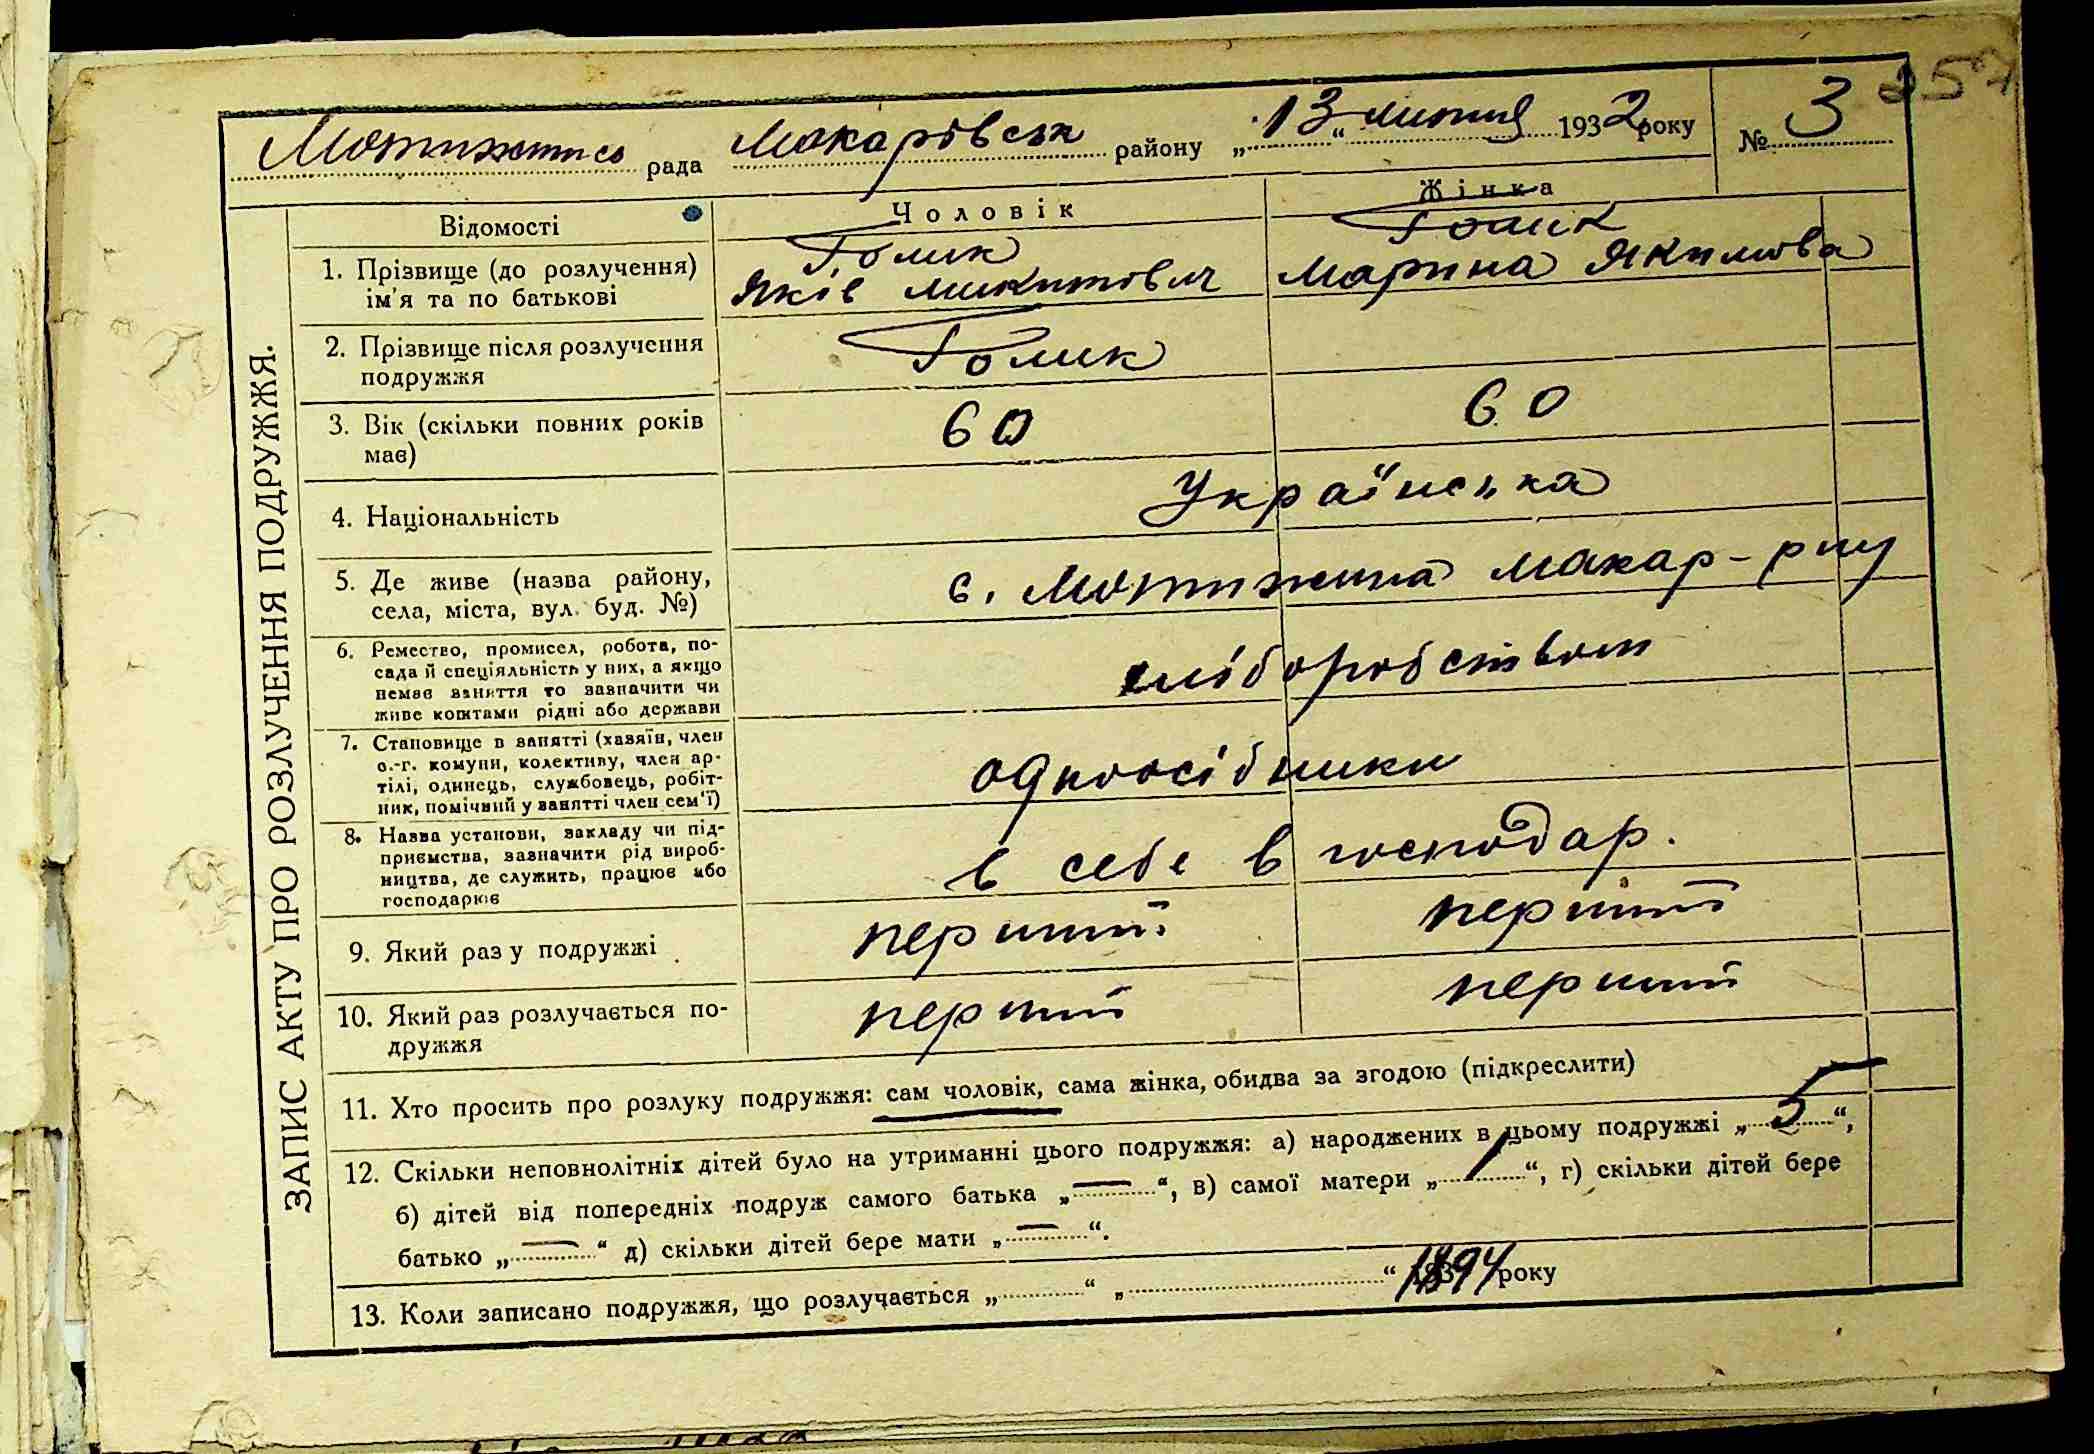 257
Мотижинсь рада Макарівськ району „13“ липня 1932 року № 3
ЗАПИС АКТУ ПРО РОЗЛУЧЕННЯ ПОДРУЖЖЯ.
Відомості Чоловік Жінка
1. Прізвище (до розлучення) Голик Голик
ім'я та по батькові Яків Микитович Марина Якимова
2. Прізвище після розлучення Голик
подружжя
3. Вік (скільки повних років 60 60
має)
4. Національність Українська
5. Де живе (назва району, с. Мотижина Макар-рну
села, міста, вул. буд. №)
6. Ремество, промисел, робота, по-
сада й спеціяльність у них, а якщо хліборобством
немає заняття то зазначити чи
живе коштами рідні або держави
7. Становище в занятті (хазяїн, член
с.-г. комуни, колективу, член ар- одноосібники
тілі, одинець, службовець, робіт-
ник, помічний у занятті член сем'ї)
8. Назва установи, закладу чи під-
приємства, зазначити рід вироб- в себе в господар.
ництва, де служить, працює або
господарює
9. Який раз у подружжі перший перший
10. Який раз розлучається по- перший перший
дружжя
11. Хто просить про розлуку подружжя: сам чоловік, сама жінка, обидва за згодою (підкреслити)
12. Скільки неповнолітніх дітей було на утриманні цього подружжя: а) народжених в цьому подружжі „5“,
б) дітей від попередніх подруж самого батька „—“, в) самої матери „ “, г) скільки дітей бере
батько „—“ д) скільки дітей бере мати „—“.
13. Коли записано подружжя, що розлучається „ “ „ “ 1894 року